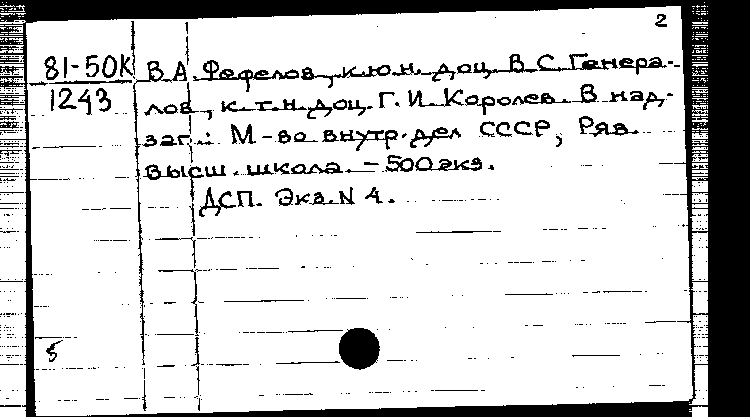 2
81-50К В.А. Фефелов, к.ю.н. доц. В.С. Генера-
1243 лов, к.т.н. доц. Г.И. Королев. В над-
заг.: М-во внутр. дел СССР, Ряз.
высш. школа. – 500 экз.
ДСП. Экз. N 4.
5